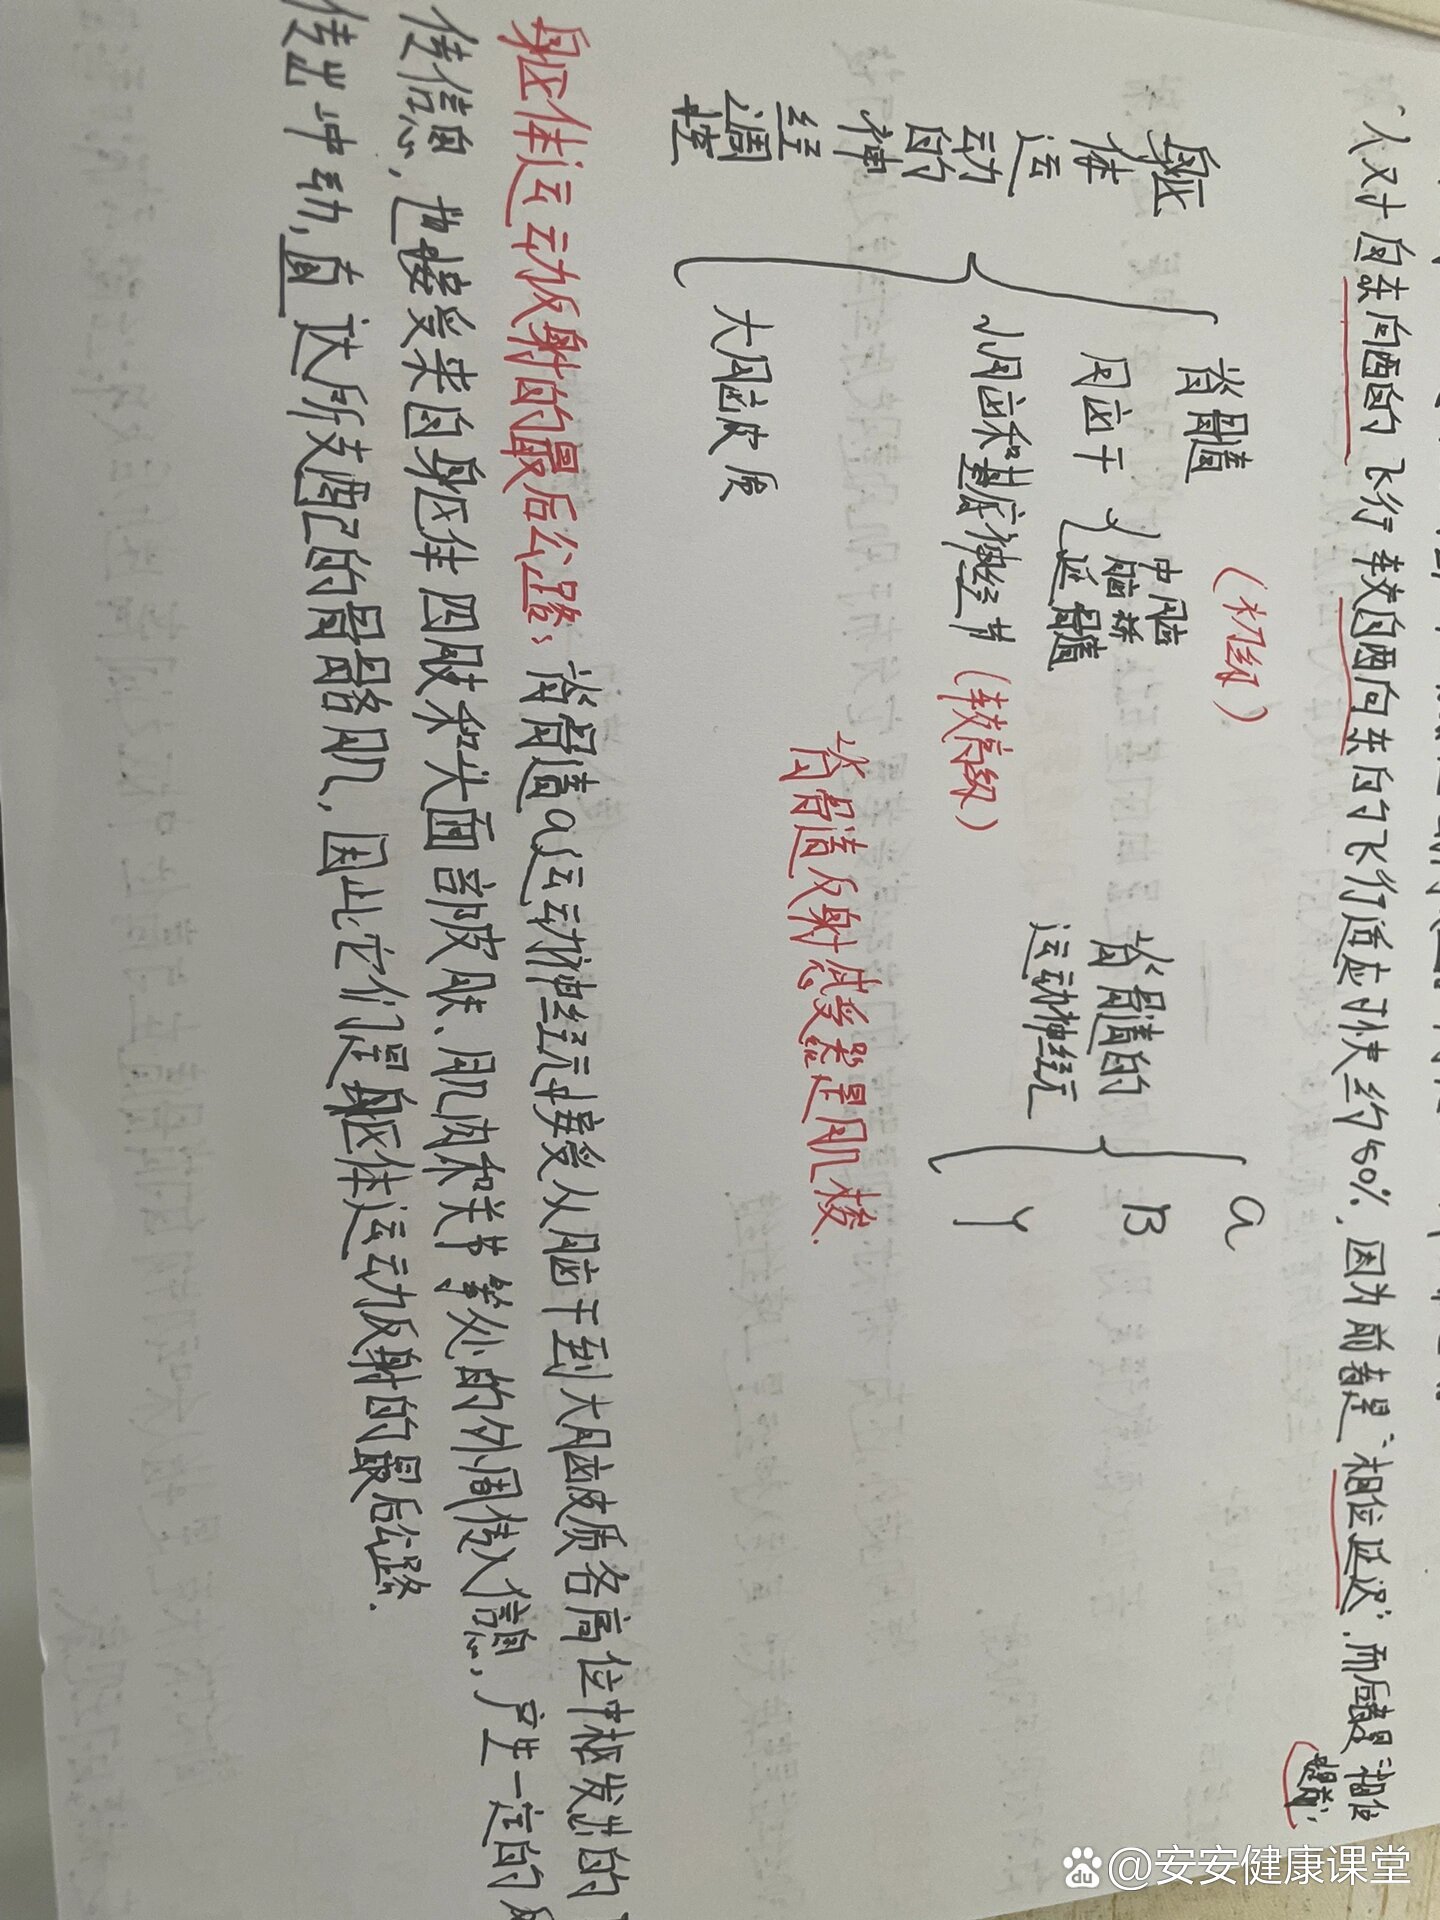 人对自东向西的飞行较自西向东的飞行适应可快约50%,因为前者是“相位延迟”,而后者是“相位
提前”
躯体运动的神经调控
脊髓(初级)
脑干
中脑
脑桥
延髓
小脑和基底神经节(较高级)
大脑皮质
脊髓的
运动神经元
α
β
γ
脊髓反射感受器是肌梭.
躯体运动反射的最后公路:脊髓α运动神经元接受从脑干到大脑皮质各高位中枢发出的
传信息,也接受来自躯体四肢和头面部皮肤、肌肉和关节等处的外周传入信息,产生一定的
传出冲动,直达所支配的骨骼肌,因此它们是躯体运动反射的最后公路.
@安安健康课堂